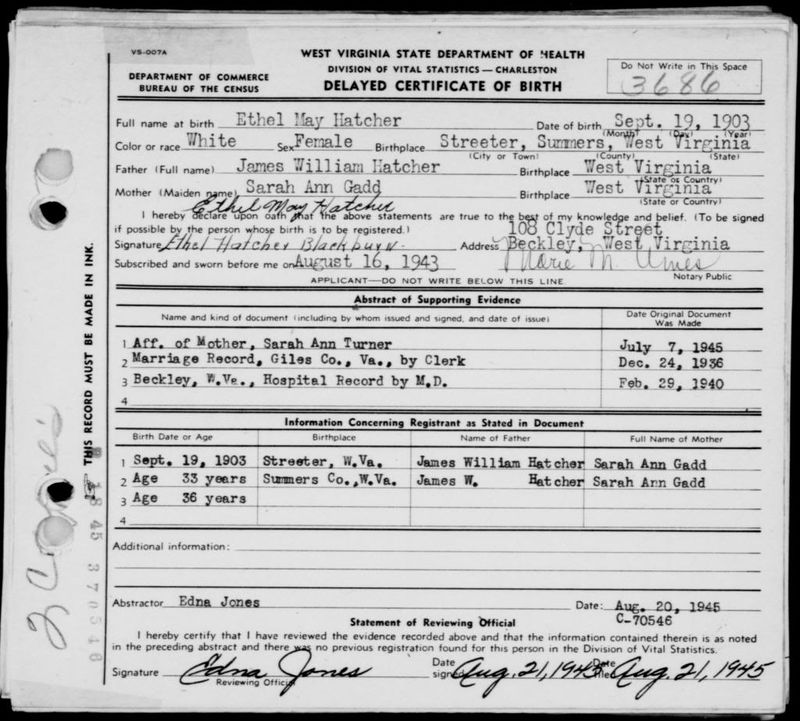 VS-007A
WEST VIRGINIA STATE DEPARTMENT OF HEALTH
DEPARTMENT OF COMMERCE
BUREAU OF THE CENSUS
DIVISION OF VITAL STATISTICS — CHARLESTON
DELAYED CERTIFICATE OF BIRTH
Do Not Write in This Space
3686
Full name at birth Ethel May Hatcher Date of birth Sept. 19, 1903
(Month) (Day) (Year)
Color or race White Sex Female Birthplace Streeter, Summers, West Virginia
(City or Town) (County) (State)
Father (Full name) James William Hatcher Birthplace West Virginia
(State or Country)
Mother (Maiden name) Sarah Ann Gadd Birthplace West Virginia
(State or Country)
Ethel May Hatcher
I hereby declare upon oath that the above statements are true to the best of my knowledge and belief. (To be signed
if possible by the person whose birth is to be registered.) 108 Clyde Street
Signature Ethel Hatcher Blackburn Address Beckley, West Virginia
Subscribed and sworn before me on August 16, 1943 Marie M. Ames
Notary Public
APPLICANT—DO NOT WRITE BELOW THIS LINE
Abstract of Supporting Evidence
Name and kind of document (including by whom issued and signed, and date of issue) Date Original Document Was Made
1 Aff. of Mother, Sarah Ann Turner July 7, 1945
2 Marriage Record, Giles Co., Va., by Clerk Dec. 24, 1936
3 Beckley, W.Va., Hospital Record by M.D. Feb. 29, 1940
4
Information Concerning Registrant as Stated in Document
Birth Date or Age Birthplace Name of Father Full Name of Mother
1 Sept. 19, 1903 Streeter, W.Va. James William Hatcher Sarah Ann Gadd
2 Age 33 years Summers Co.,W.Va. James W. Hatcher Sarah Ann Gadd
3 Age 36 years
4
Additional information:
Abstractor Edna Jones Date: Aug. 20, 1945
C-70546
Statement of Reviewing Official
I hereby certify that I have reviewed the evidence recorded above and that the information contained therein is as noted
in the preceding abstract and there was no previous registration found for this person in the Division of Vital Statistics.
Signature Edna Jones Date signed Aug. 21, 1945 Date filed Aug. 21, 1945
Reviewing Official
THIS RECORD MUST BE MADE IN INK.
18 45 370546
2 Copies